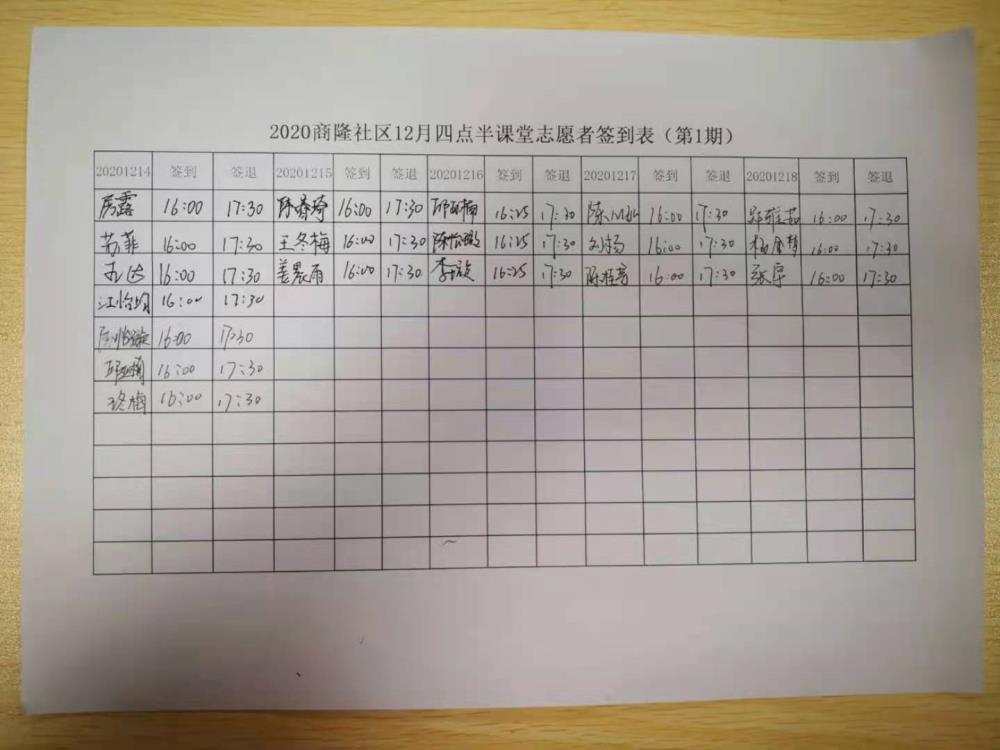 2020商隆社区12月四点半课堂志愿者签到表（第1期）
20201214 签到 签退 20201215 签到 签退 20201216 签到 签退 20201217 签到 签退 20201218 签到 签退
厉露 16:00 17:30 16:00 17:30 邱亚楠 16:25 17:30 16:00 17:30 郑雅茹 16:00 17:30
苏菲 16:00 17:30 王冬梅 16:00 17:30 陈怡璇 16:25 17:30 刘杨 16:00 17:30 16:00 17:30
16:00 17:30 姜晨雨 16:00 17:30 李旋 16:25 17:30 16:00 17:30 16:00 17:30
江怡均 16:00 17:30
16:00 17:30
16:00 17:30
16:00 17:30